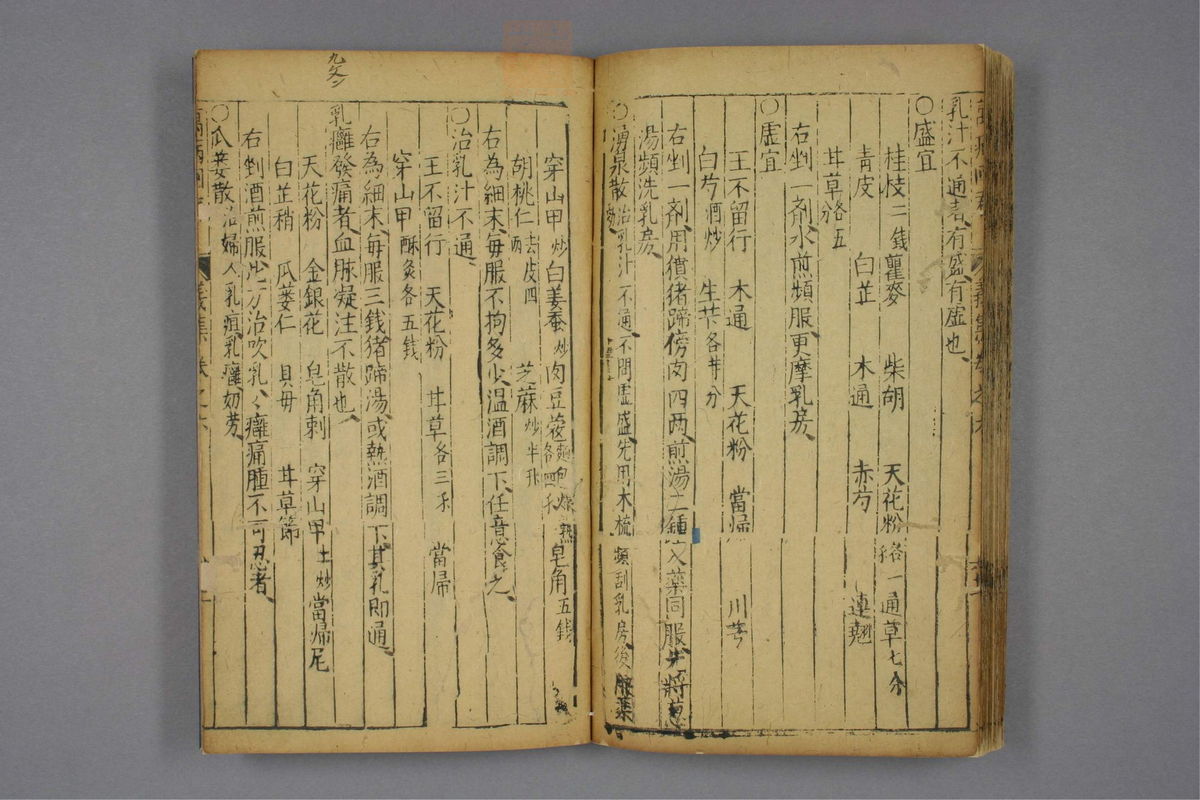 乳汁不通者、有盛有虛也、
○盛宜
桂枝二錢 瞿麥 柴胡 天花粉各一 通草七分
青皮 白芷 木通 赤芍 連翹
甘草各五分
右剉一剤、水煎頻服、更摩乳房、
○虛宜
王不留行 木通 天花粉 當帰 川芎
白芍酒炒 生芐各等分
右剉一剤、用𤡑猪蹄傍肉四两、煎湯二鍾、入薬同服、先將葱
湯頻洗乳房、
○湧泉散 治乳汁不通、不問虛盛、先用木梳頻刮乳房、後服薬
穿山甲炒 白姜蚕炒 肉豆蔲麺包煨熟各四 皂角五錢
胡桃仁去皮四 芝麻炒半升
右為細末、毎服不拘多少、温酒調下、任意食之、
○治乳汁不通、
王不留行 天花粉 甘草各三 當帰
穿山甲酥灸各五錢
右為細末、毎服三錢、猪蹄湯、或熱酒調下、其乳即通、
乳癰發痛者、血脉凝注不散也、
天花粉 金銀花 皂角刺 穿山甲土炒 當帰尾
白芷梢 瓜蒌仁 貝母 甘草節
右剉、酒煎服、此方治吹乳、乳癰痛腫不可忍者、
○瓜蒌散 治婦人乳疽乳癰奶劳、